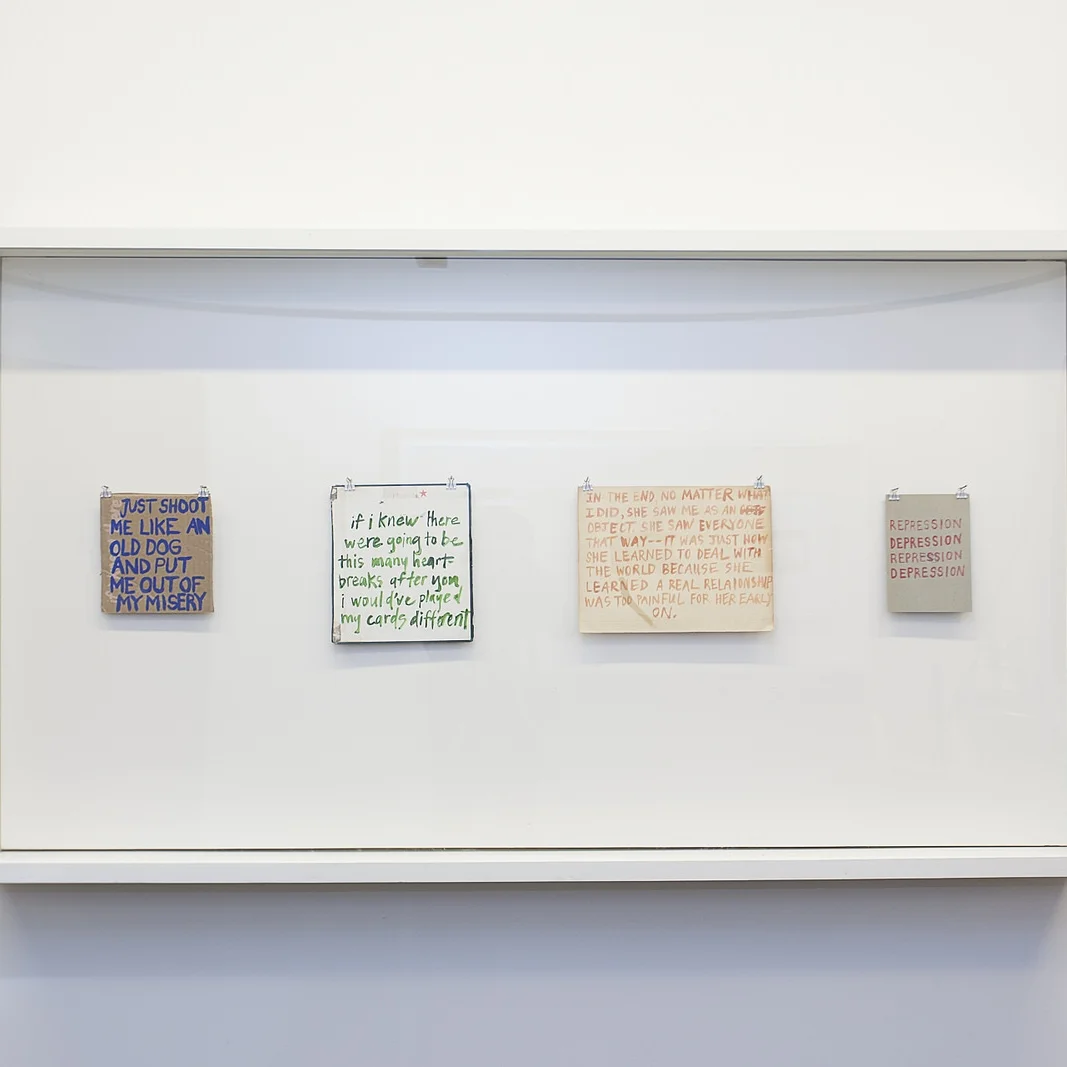 JUST SHOOT
ME LIKE AN
OLD DOG
AND PUT
ME OUT OF
MY MISERY
if i knew there
were going to be
this many heart-
breaks after you
i would've played
my cards different
IN THE END NO MATTER WHAT
I DID, SHE SAW ME AS AN
OBJECT. SHE SAW EVERYONE
THAT WAY--IT WAS JUST HOW
SHE LEARNED TO DEAL WITH
THE WORLD BECAUSE SHE
LEARNED A REAL RELAIONSHIP
WAS TOO PAINFUL FOR HER EARLY
ON.
REPRESSION
DEPRESSION
REPRESSION
DEPRESSION